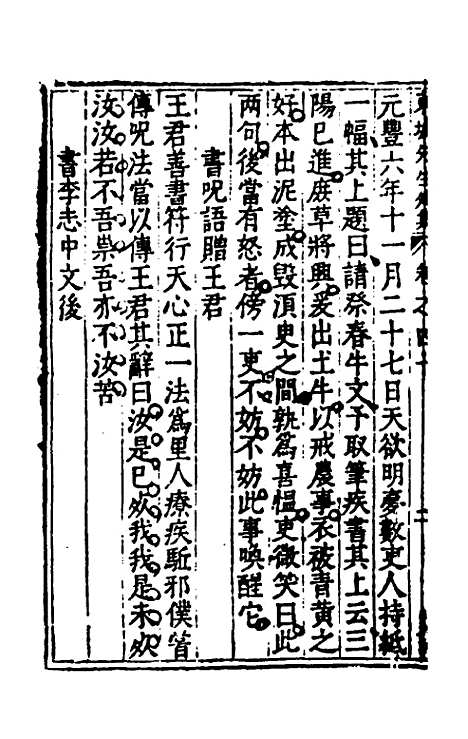 東坡先生外集 卷之四十 二
元豐六年十一月二十七日天欲明夢數吏人持紙
一幅其上題曰請祭春牛文予取筆疾書其上云三
陽已進庶草將興爰出土牛以戒農事衣被青黃之
好本出泥塗成毀須臾之間孰爲喜慍吏微笑曰此
两句後當有怒者傍一吏不妨不妨此事喚醒它
書呪語贈王君
王君善書符行天心正一法爲里人療疾驅邪僕嘗
傳呪法當以傳王君其辭曰汝是已死我我是未死
汝汝若不吾祟吾亦不汝苦
書李志中文後